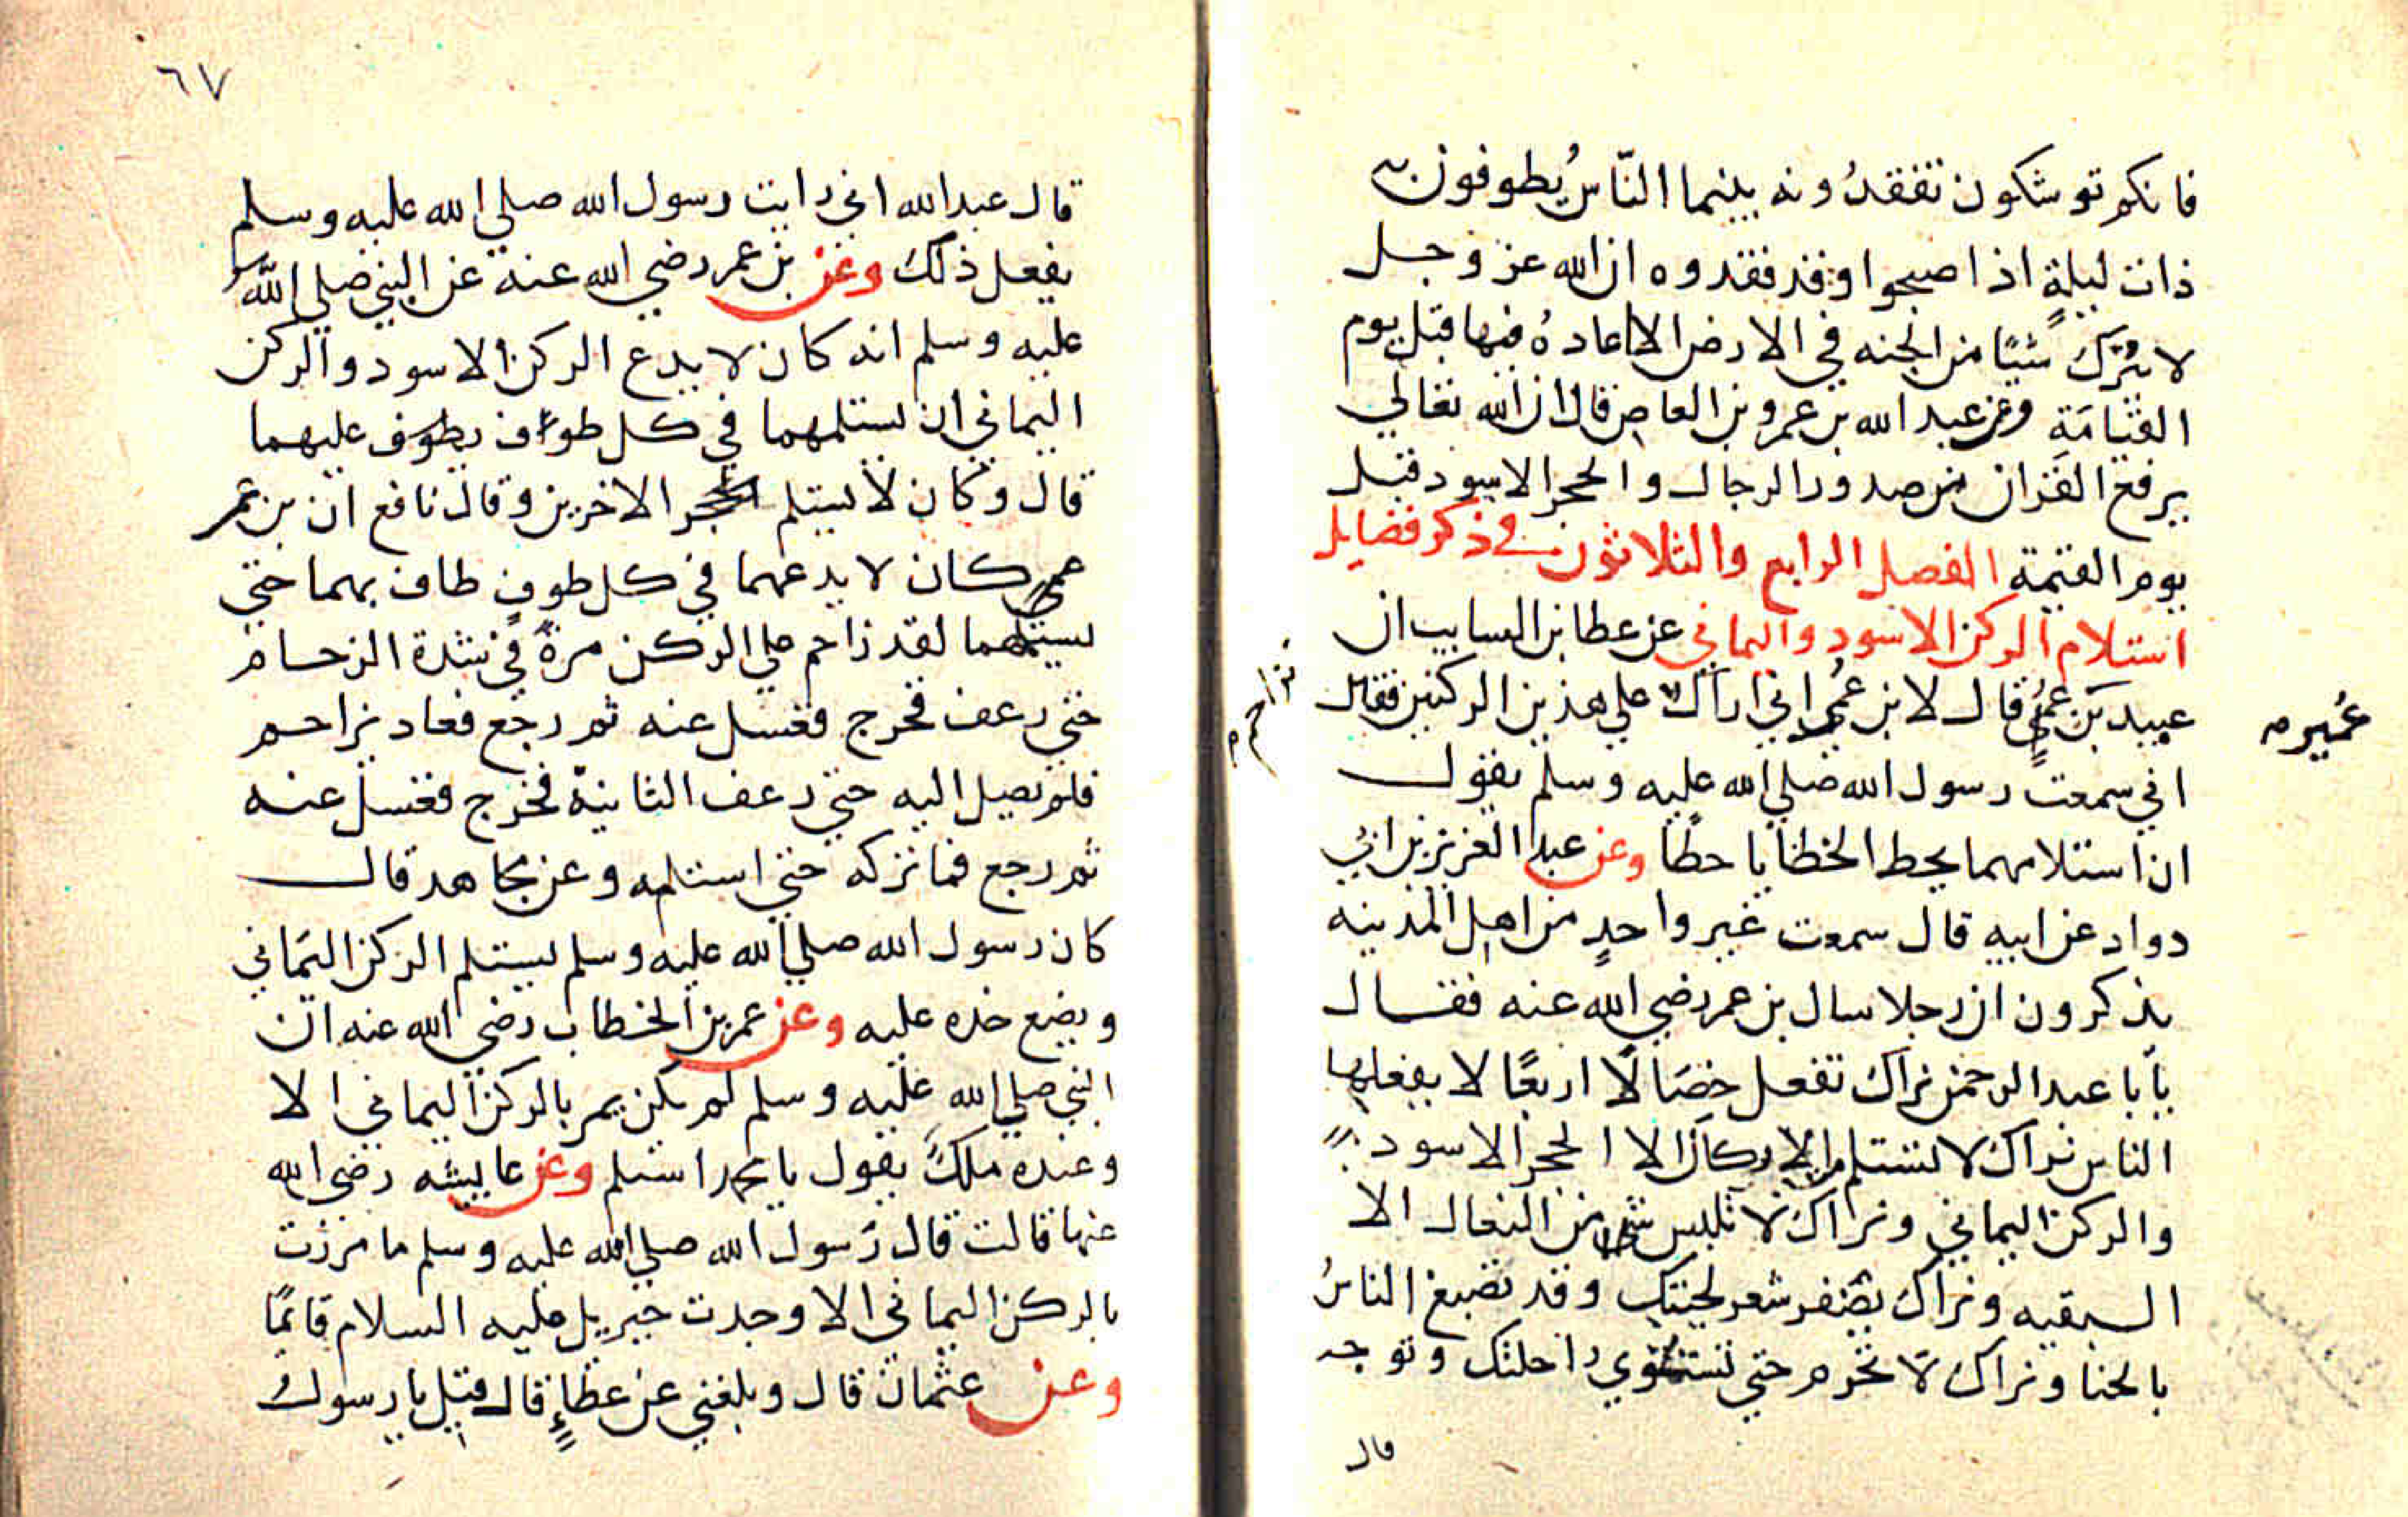 فانكم توشكون تفقدُونه بينما النّاسُ يُطوفون به
ذات ليلةٍ اذا اصبحوا وقد فقدوه ان الله عز وجل
لا يترك شيًا من الجنه في الارض الا اعادهُ فيها قبل يوم
القيامَةِ وعن عبد الله بن عمرو بن العاص قال ان الله تعالي
يرفع القران من صدور الرجال والحجر الاسود قبل
يوم القيمة الفصل الرابع والثلاثون في ذكر فضايل
استلام الركن الاسود واليماني عن عطا بن السايب ان
عبيد بن عُمير قال لابن عُمر اني اراك علي هذين الركنين فقال
عُمير
تزاحم
اني سمعت رسول الله صلي الله عليه وسلم يقول
ان استلامهما يحط الخطايا حطًا وعن عبد العزيز بن ابي
دواد عن ابيه قال سمعت غير واحدٍ من اهل المدينه
يذكرون ان رجلا سال بن عمر رضي الله عنه فقال
يابا عبد الرحمن نراك تفعل خصَالًا اربعًا لا يفعلها
الناس نراك لا تستلم من الاركان الا الحجر الاسود
والركن اليماني ونراك لا تلبس من النعال الا
السبقيه ونراك تصفر شعر لحيتك وقد تصبغ الناسُ
بالحنا ونراك لا تحرم حتي تستوي راحلتك وتوجه
قال
٦٧
قال عبد الله اني رايت رسول الله صلي الله عليه وسلم
يفعل ذلك وعن بن عمر رضي الله عنه عن النبي صلي اللّه
عليه وسلم انه كان لا يدع الركن الاسود والركن
اليماني ان يستلمهما في كل طواف يطوف عليهما
قال وكان لا يستلم الحجر الاخرين وقال نافع ان بن عمر
كان لا يدعهما في كل طوفٍ طاف بهما حتي
يستلمهما لقد زاحم علي الركن مرةً في شدة الزحام
حتي رعف فخرج فغسل عنه ثم رجع فعاد يزاحم
فلم يصل اليه حتي رعف الثانية فخرج فغسل عنه
ثم رجع فما تركه حتي استلمه وعن مجاهد قال
كان رسول الله صلي الله عليه وسلم يستلم الركن اليَماني
ويضع خده عليه وعن عمر بن الخطاب رضي الله عنه ان
النبي صلي الله عليه وسلم لم يكن يمر بالركن اليماني الا
وعنده ملكً يقول يا محمد استلم وعن عايشه رضي الله
عنها قالت قال رَسول الله صلي الله عليه وسلم ما مررت
بالركن اليماني الا وجدت جبريل عليه السلام قائمًا
وعن عثمان قال وبلغني عن عطاءٍ قال قيل يا رسول